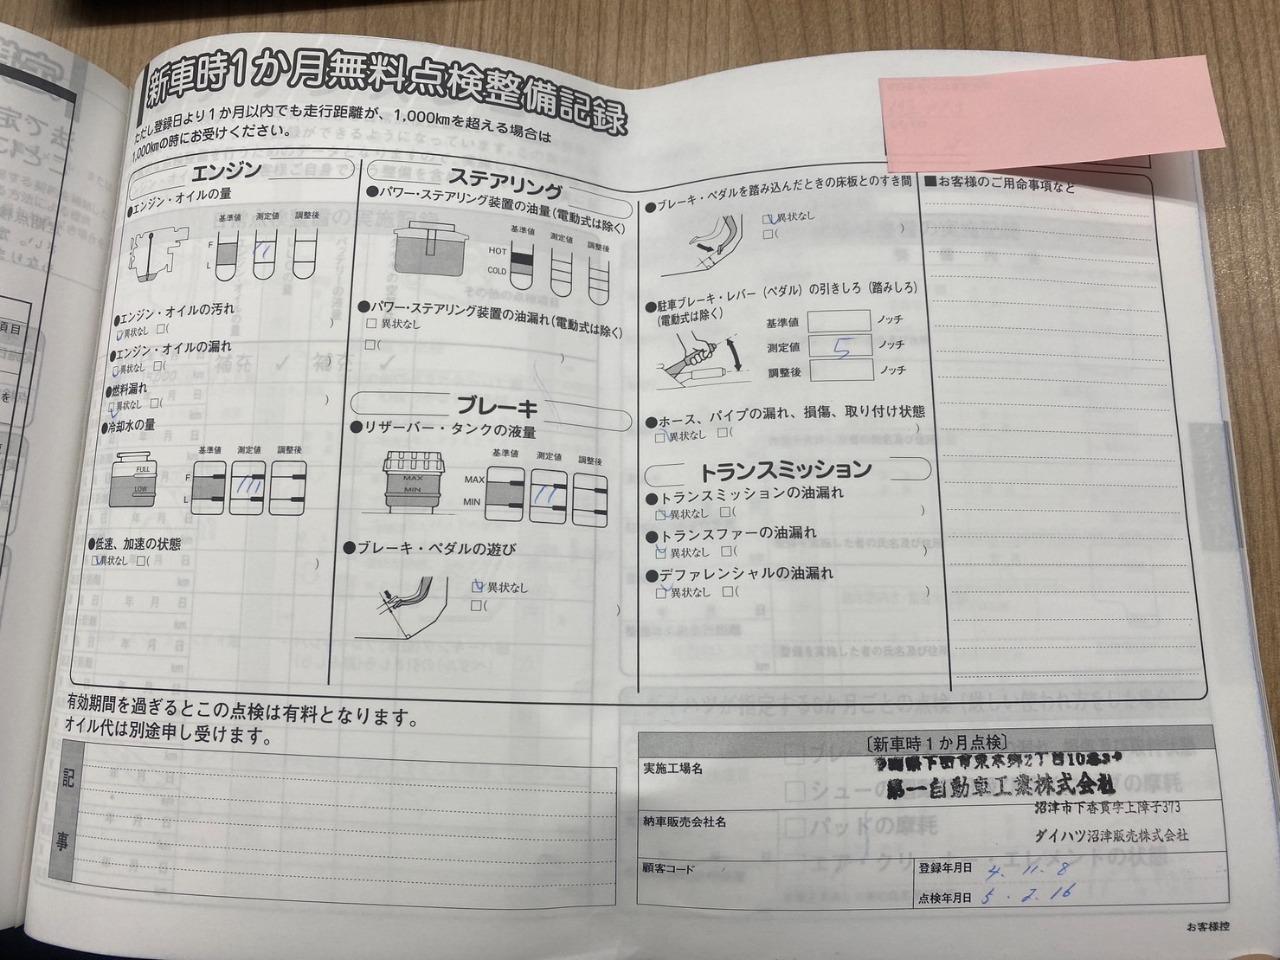 新車時1か月無料点検整備記録
ただし登録日より1か月以内でも走行距離が、1,000kmを超える場合は
1,000kmの時にお受けください。
エンジン
●エンジン・オイルの量
基準値 測定値 調整後
F
L
●エンジン・オイルの汚れ
□異状なし □( )
●エンジン・オイルの漏れ
□異状なし □( )
●燃料漏れ
□異状なし □( )
●冷却水の量
基準値 測定値 調整後
FULL
LOW
F
L
●低速、加速の状態
□異状なし □( )
ステアリング
●パワー・ステアリング装置の油量(電動式は除く)
基準値 測定値 調整後
HOT
COLD
●パワー・ステアリング装置の油漏れ(電動式は除く)
□ 異状なし
□( )
ブレーキ
●リザーバー・タンクの液量
基準値 測定値 調整後
MAX
MIN
MAX
MIN
●ブレーキ・ペダルの遊び
□ 異状なし
□( )
●ブレーキ・ペダルを踏み込んだときの床板とのすき間
□異状なし
□( )
●駐車ブレーキ・レバー(ペダル)の引きしろ(踏みしろ)
(電動式は除く)
基準値 ノッチ
測定値 5 ノッチ
調整後 ノッチ
●ホース、パイプの漏れ、損傷、取り付け状態
□異状なし □( )
トランスミッション
●トランスミッションの油漏れ
□異状なし □( )
●トランスファーの油漏れ
□異状なし □( )
●デファレンシャルの油漏れ
□異状なし □( )
■お客様のご用命事項など
有効期間を過ぎるとこの点検は有料となります。
オイル代は別途申し受けます。
記事
〔新車時1か月点検〕
実施工場名
第一自動車工業株式会社
納車販売会社名
沼津市下香貫字上障子373
ダイハツ沼津販売株式会社
顧客コード
登録年月日 4.11.8
点検年月日 5.2.16
お客様控